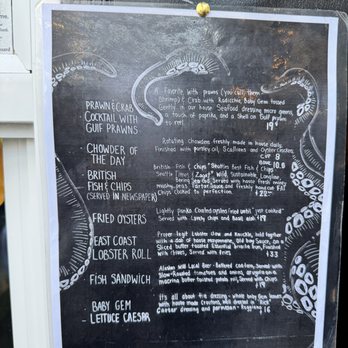 PRAWN & CRAB
COCKTAIL WITH
GULF PRAWNS
A Favorite with prawns (you call them
Shrimp) & Crab with Radicchio, Baby Gem tossed
Gently in our house Seafood dressing micro greens,
a touch of paprika, and a Shell on Gulf prawn
to peel. 19
CHOWDER OF
THE DAY
Rotating Chowders freshly made in house daily.
Finished with parsley oil, Scallions and Oyster Crackers
CUP 8
10.0
BRITISH
FISH & CHIPS
(SERVED IN NEWSPAPER)
British Fish & Chips Best Fish &
Wild, Sustainable
Served with house fresh made
mushy peas Tartar Sauce and freshly hand cut
Chips cooked to perfection
FRIED OYSTERS
Lightly Panko Coated oysters fried until "just cooked"
Served with Lovely Chips and Basil aioli 19
EAST COAST
LOBSTER ROLL
Proper legit Lobster Claw and Knuckle, held together
with a dab of house mayonnaise, Old bay Sauce, on a
Sliced butter toasted Brioche bun, Finished
with chives, Served with fries. $33
FISH SANDWICH
Alaskan Cod Local Beer-Battered Cod, Served with
Slow-Roasted tomatoes and onions, arugula on a
butter toasted potato roll, Served with Chips
$19
BABY GEM
LETTUCE CAESAR
It's all about the dressing - whole baby Gem leaves
with house made Croutons, well dressed in "Rick"
Caesar dressing and parmesan - Reggiano $16